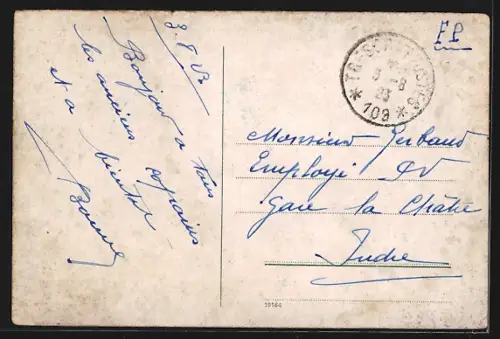 3.8.23
Bonjour a tous
les anciens copains
et a bientot
F.P.
TRESOR ET POSTES
3 - 8
23
* 109 *
Monsieur Gerbaud
Employé PV
Gare la Châtre
Indre